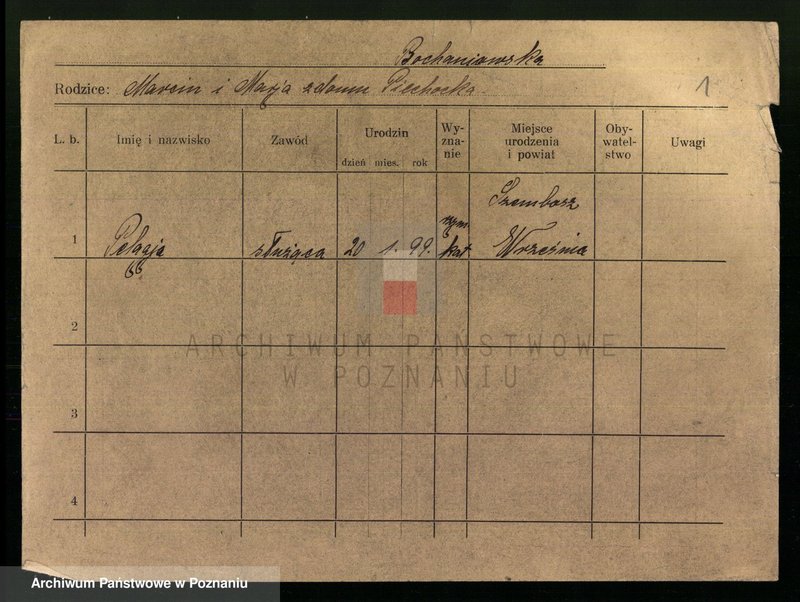 Bochaniowska
Rodzice: Marcin i Marja z domu Siechocka
1
L. b. Imię i nazwisko Zawód Urodzin dzień mies. rok Wy-zna-nie Miejsce urodzenia i powiat Oby-watel-stwo Uwagi
1 Pelagja służąca 20 1. 99. rzym. kat Września
2
3
4
ARCHIWUM PAŃSTWOWE
W POZNANIU
Archiwum Państwowe w Poznaniu